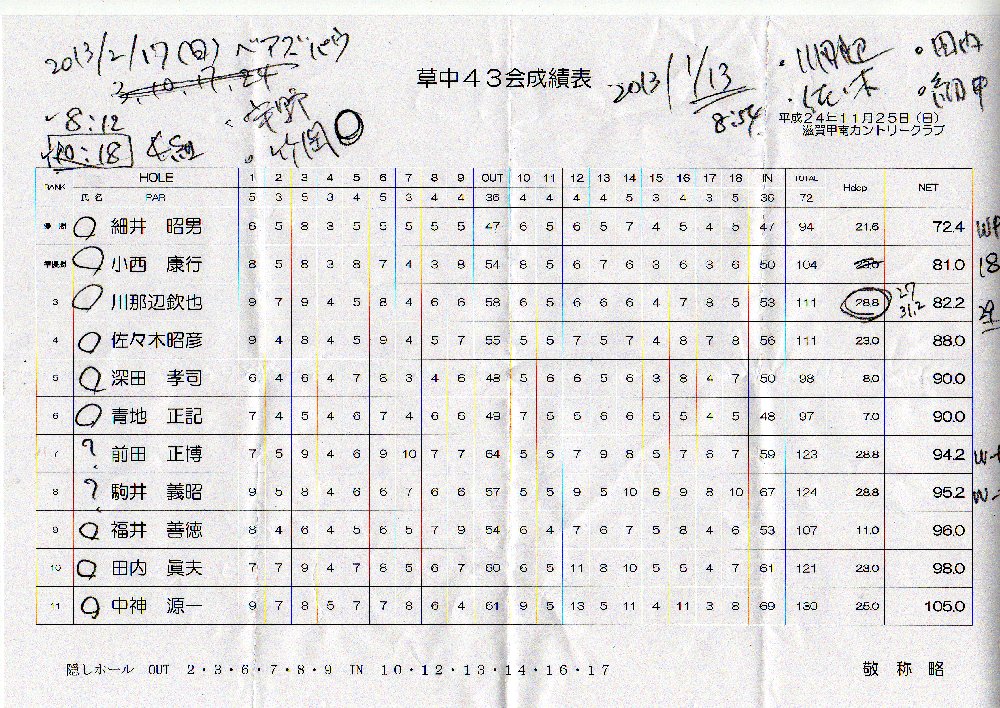 2013/2/17(日)
3,10,17,24
8:12
10:18
竹岡
草中43会成績表
2013 1/13
8:54
佐々木
田内
細井
平成24年11月25日(日)
滋賀甲南カントリークラブ
RANK HOLE 1 2 3 4 5 6 7 8 9 OUT 10 11 12 13 14 15 16 17 18 IN TOTAL Hdcp NET
氏名 PAR 5 3 5 3 4 5 3 4 4 36 4 4 4 4 5 3 4 3 5 36 72
優勝 細井 昭男 6 5 8 3 5 5 5 5 5 47 6 5 6 5 7 4 5 4 5 47 94 21.6 72.4
準優勝 小西 康行 8 5 8 3 8 7 4 3 8 54 8 5 6 7 6 3 6 3 6 50 104 23.0 81.0 18
3 川那辺欽也 9 7 9 4 5 8 4 6 6 58 6 5 6 6 6 4 7 8 5 53 111 28.8 27 31.2 82.2 29
4 佐々木昭彦 9 4 8 4 5 9 4 5 7 55 5 5 7 5 7 4 8 7 8 56 111 23.0 88.0
5 深田 孝司 6 4 6 4 7 6 3 4 6 48 5 6 6 5 6 3 8 4 7 50 98 8.0 90.0
6 青地 正記 7 4 5 4 6 7 4 6 6 49 7 5 5 6 6 5 5 4 5 48 97 7.0 90.0
7 ? 前田 正博 7 5 9 4 6 9 10 7 7 64 5 5 7 9 8 5 7 6 7 59 123 28.8 94.2
8 ? 駒井 義昭 9 5 8 4 6 6 7 6 6 57 5 5 9 5 10 6 9 8 10 67 124 28.8 95.2
9 福井 善徳 8 4 6 4 5 6 5 7 9 54 6 4 7 6 7 5 8 4 6 53 107 11.0 96.0
10 田内 眞夫 7 7 9 4 7 8 5 6 7 60 6 5 11 8 10 5 5 4 7 61 121 23.0 98.0
11 中神 源一 9 7 8 5 7 7 8 6 4 61 9 5 13 5 11 4 11 3 8 69 130 25.0 105.0
隠しホール OUT 2・3・6・7・8・9 IN 10・12・13・14・16・17
敬称略